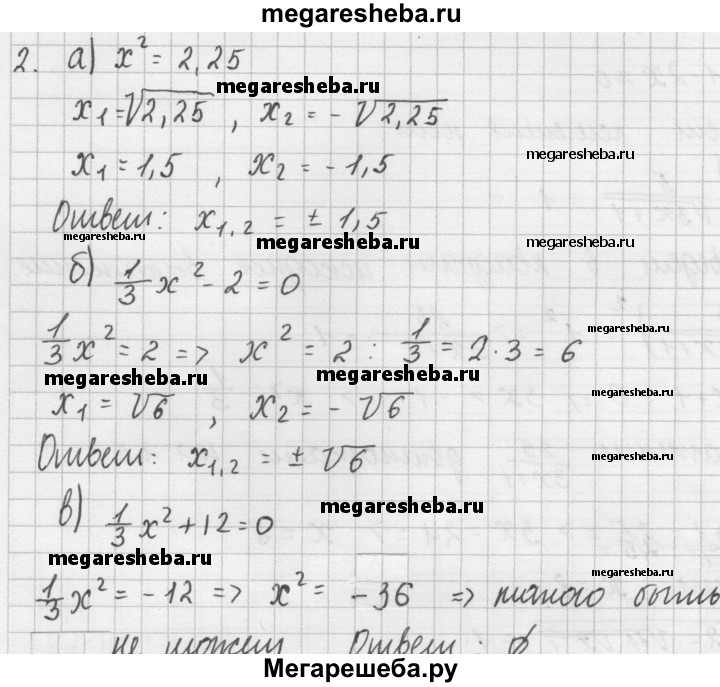 megaresheba.ru
2. а) x² = 2,25
megaresheba.ru
x₁ = √2,25 , x₂ = - √2,25
x₁ = 1,5 , x₂ = - 1,5
megaresheba.ru
Ответ: x₁,₂ = ± 1,5
megaresheba.ru megaresheba.ru megaresheba.ru
б) 1/3 x² - 2 = 0
megaresheba.ru
1/3 x² = 2 => x² = 2 : 1/3 = 2 · 3 = 6
megaresheba.ru megaresheba.ru megaresheba.ru
x₁ = √6 , x₂ = - √6
Ответ: x₁,₂ = ± √6
megaresheba.ru
в) 1/3 x² + 12 = 0
megaresheba.ru
megaresheba.ru
megaresheba.ru
1/3 x² = - 12 => x² = - 36 => такого быть
не может Ответ: ∅
Мегарешеба.ру